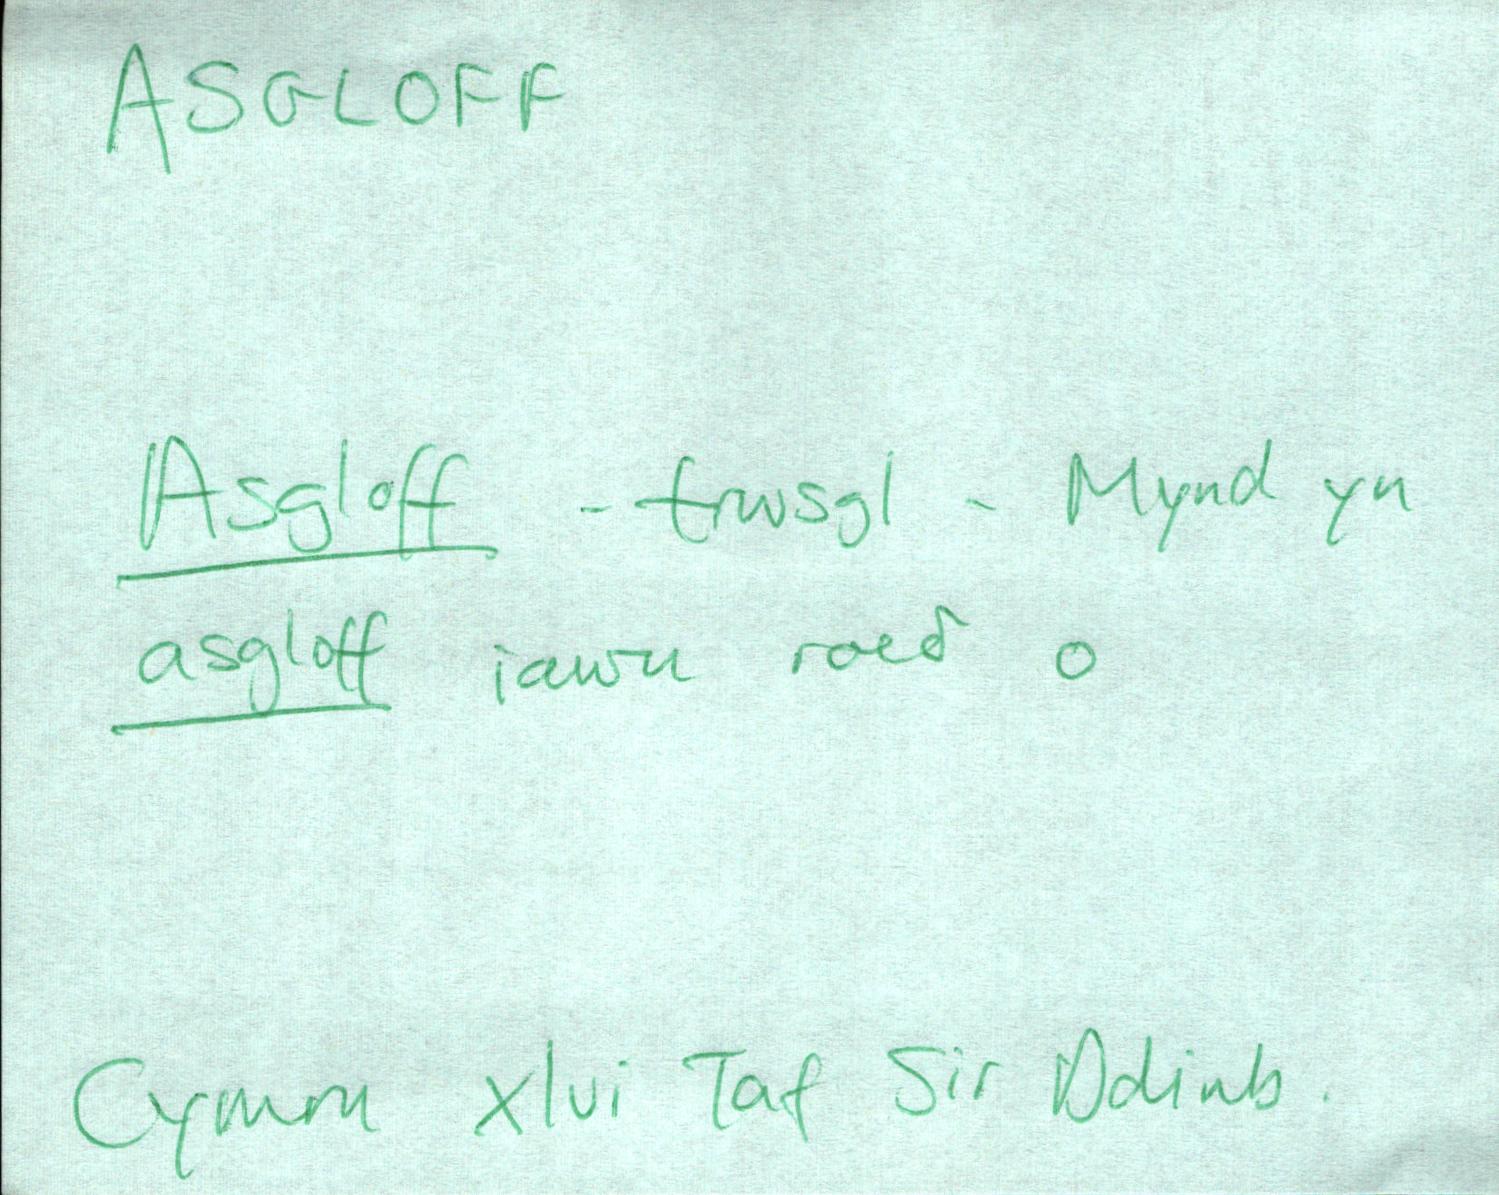 ASGLOFF
Asgloff - trwsgl - Mynd yn
asgloff iawn roeđ o
Cymru xlvi Taf Sir Ddinb.